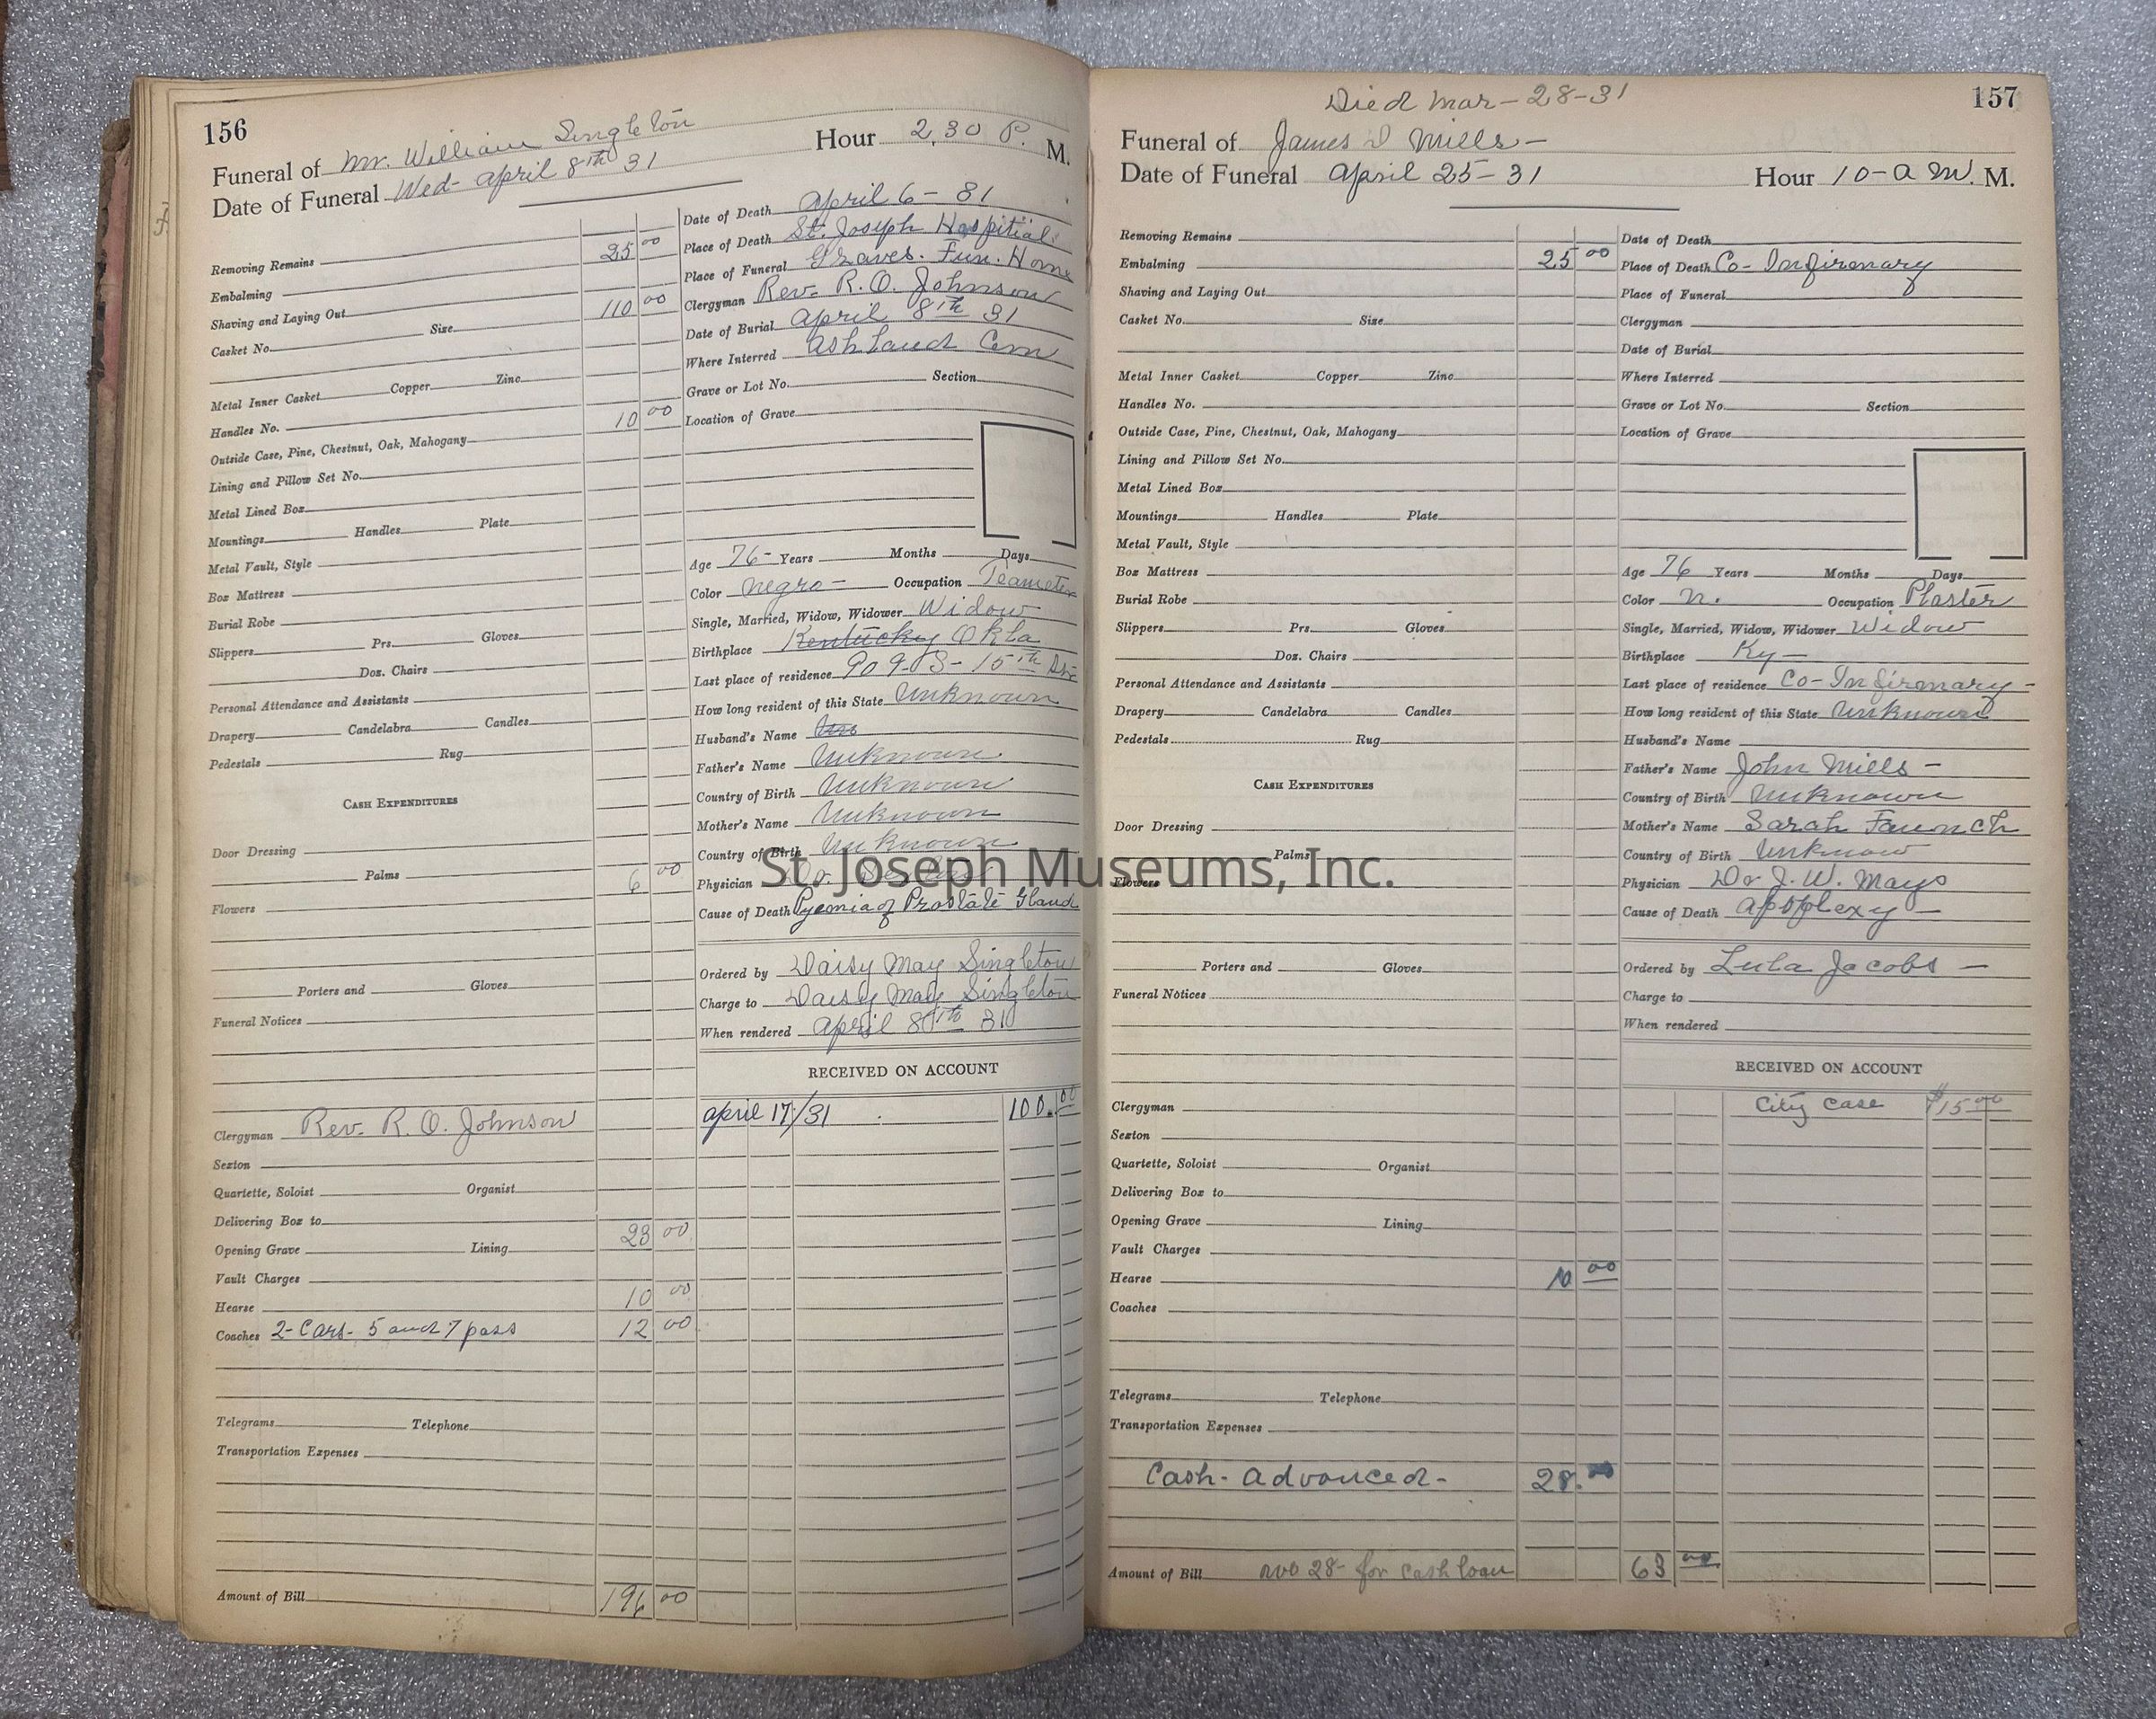 156
Funeral of Mr. William Singleton Hour 2,30 P. M.
Date of Funeral Wed- April 8th 31
Removing Remains
Embalming 25 00
Shaving and Laying Out
Casket No. Size 110 00
Metal Inner Casket Copper Zinc
Handles No.
Outside Case, Pine, Chestnut, Oak, Mahogany 10 00
Lining and Pillow Set No.
Metal Lined Box
Mountings Handles Plate
Metal Vault, Style
Box Mattress
Burial Robe
Slippers Prs. Gloves
Doz. Chairs
Personal Attendance and Assistants
Drapery Candelabra Candles
Pedestals Rug
CASH EXPENDITURES
Door Dressing
Palms
Flowers 6 00
Porters and Gloves
Funeral Notices
Clergyman Rev. R. O. Johnson
Sexton
Quartette, Soloist Organist
Delivering Box to
Opening Grave Lining 23 00
Vault Charges
Hearse 10 00
Coaches 2- Cars- 5 and 7 pass 12 00
Telegrams Telephone
Transportation Expenses
Amount of Bill 196 00
Date of Death April 6 - 31
Place of Death St. Joseph Hospitial
Place of Funeral Graves. Fun. Home
Clergyman Rev. R. O. Johnson
Date of Burial April 8th 31
Where Interred Ashland Cem
Grave or Lot No. Section
Location of Grave
Age 76- Years Months Days
Color negro - Occupation Teamster
Single, Married, Widow, Widower Widow
Birthplace Kentucky Okla
Last place of residence 909- S- 15th Str
How long resident of this State Unknown
Husband's Name
Father's Name Unknown
Country of Birth Unknown
Mother's Name Unknown
Country of Birth Unknown
Physician Dr.
Cause of Death Pyemia of Prostate Gland
Ordered by Daisy May Singleton
Charge to Daisy May Singleton
When rendered April 8th 31
RECEIVED ON ACCOUNT
April 17/31 100.00
157
Died Mar - 28-31
Funeral of James D Mills -
Date of Funeral April 25-31 Hour 10-A M. M.
Removing Remains
Embalming 25 00
Shaving and Laying Out
Casket No. Size
Metal Inner Casket Copper Zinc
Handles No.
Outside Case, Pine, Chestnut, Oak, Mahogany
Lining and Pillow Set No.
Metal Lined Box
Mountings Handles Plate
Metal Vault, Style
Box Mattress
Burial Robe
Slippers Prs. Gloves
Doz. Chairs
Personal Attendance and Assistants
Drapery Candelabra Candles
Pedestals Rug
CASH EXPENDITURES
Door Dressing
Palms
Flowers
Porters and Gloves
Funeral Notices
Clergyman
Sexton
Quartette, Soloist Organist
Delivering Box to
Opening Grave Lining
Vault Charges
Hearse 10 00
Coaches
Telegrams Telephone
Transportation Expenses
Cash- Advanced- 28.00
Amount of Bill 28- for cash loan 63 00
Date of Death
Place of Death Co- Infirenary
Place of Funeral
Clergyman
Date of Burial
Where Interred
Grave or Lot No. Section
Location of Grave
Age 76 Years Months Days
Color n. Occupation Plaster
Single, Married, Widow, Widower Widow
Birthplace Ky -
Last place of residence Co- Infirenary -
How long resident of this State Unknown
Husband's Name
Father's Name John Mills -
Country of Birth Unknown
Mother's Name Sarah
Country of Birth Unknow
Physician Dr J. W. Mays
Cause of Death Apoplexy -
Ordered by Lula Jacobs -
Charge to
When rendered
RECEIVED ON ACCOUNT
City Case $15 00
St. Joseph Museums, Inc.